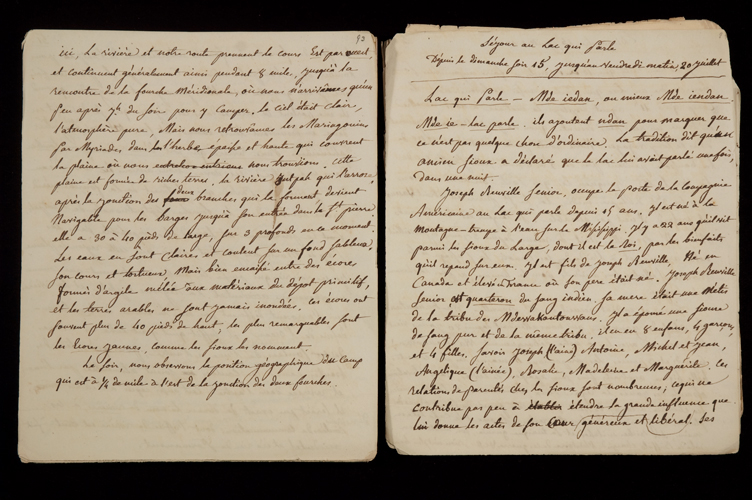 93
ici, La rivière et notre route prennent le cours Est par ouest,
et continuent généralement ainsi pendant 8 mile, jusqu'à la
rencontre de la fourche Méridionale, où nous n'arrivâmes qu'un
peu après 7h. du soir pour y Camper, le Ciel était clair,
l'atmosphère pure, Mais nous retrouvâmes les Maringouins
par Myriades, dans les herbes épaisse et haute qui couvrent
la plaine où nous nous trouvions. Cette
plaine est formée de riches terres, la rivière qui l'arrose,
après la jonction des deux branches qui la forment devient
Navigable pour les barges jusqu'à son entrée dans la St. pierre.
elle a 30 à 40 pieds de large, sur 3 profonds en ce moment.
Les eaux en sont Claires et coulent sur un fond sableux.
son cours est tortueux, Mais bien encaissé entre des écores
formés d'argile mêlée aux matériaux du dépot primitif,
et les terres arables ne sont jamais inondées. les écores ont
souvent plus de 40 pieds de haut, les plus remarquables sont
les écores jaunes, comme les sioux les nomment.
Le soir, nous observons la position géographique du Camp
qui est à 1/4 de mile à l'est de la jonction des deux fourches.
Séjour au Lac qui Parle
Depuis le dimanche soir 15 jusqu'au vendredi matin, 20 juillet
Lac qui Parle — Mde iedan, ou mieux Mde iendan
Mde ie - lac parle. ils ajoutent ndan pour marquer que
ce n'est pas quelque chose d'ordinaire. La tradition dit qu'un
ancien sioux a déclaré que le lac lui avait parlé une fois,
dans une nuit.
Joseph Renville Senior, occupe le poste de la Compagnie
Américaine au Lac qui parle depuis 15 ans, il est né à la
Montagne - trempe à l'eau sur le Mississipi. Il y a 22 ans qu'il vit
parmi les sioux du Large, dont il est le Roi, par les bienfaits
qu'il répand sur eux. Il est fils de Joseph Renville, Né en
Canada et élevé en France où son père était né. Joseph Renville
Senior est quarteron du sang indien. Sa mère était une Métis
de la tribu des Mdewakantonwan. Il a épousé une sioux
de sang pur et de la même tribu. il en eu 8 enfans, 4 garçons,
et 4 filles, savoir Joseph (l'ainé) Antoine, Michel et Jean,
Angelique (l'ainée), Rosalie, Madeleine et Marguérite. les
relations de parentés chez les sioux sont nombreuses, ce qui ne
contribue pas peu à étendre la grande influence que
lui donne les actes de son Coeur généreux et libéral. Ses